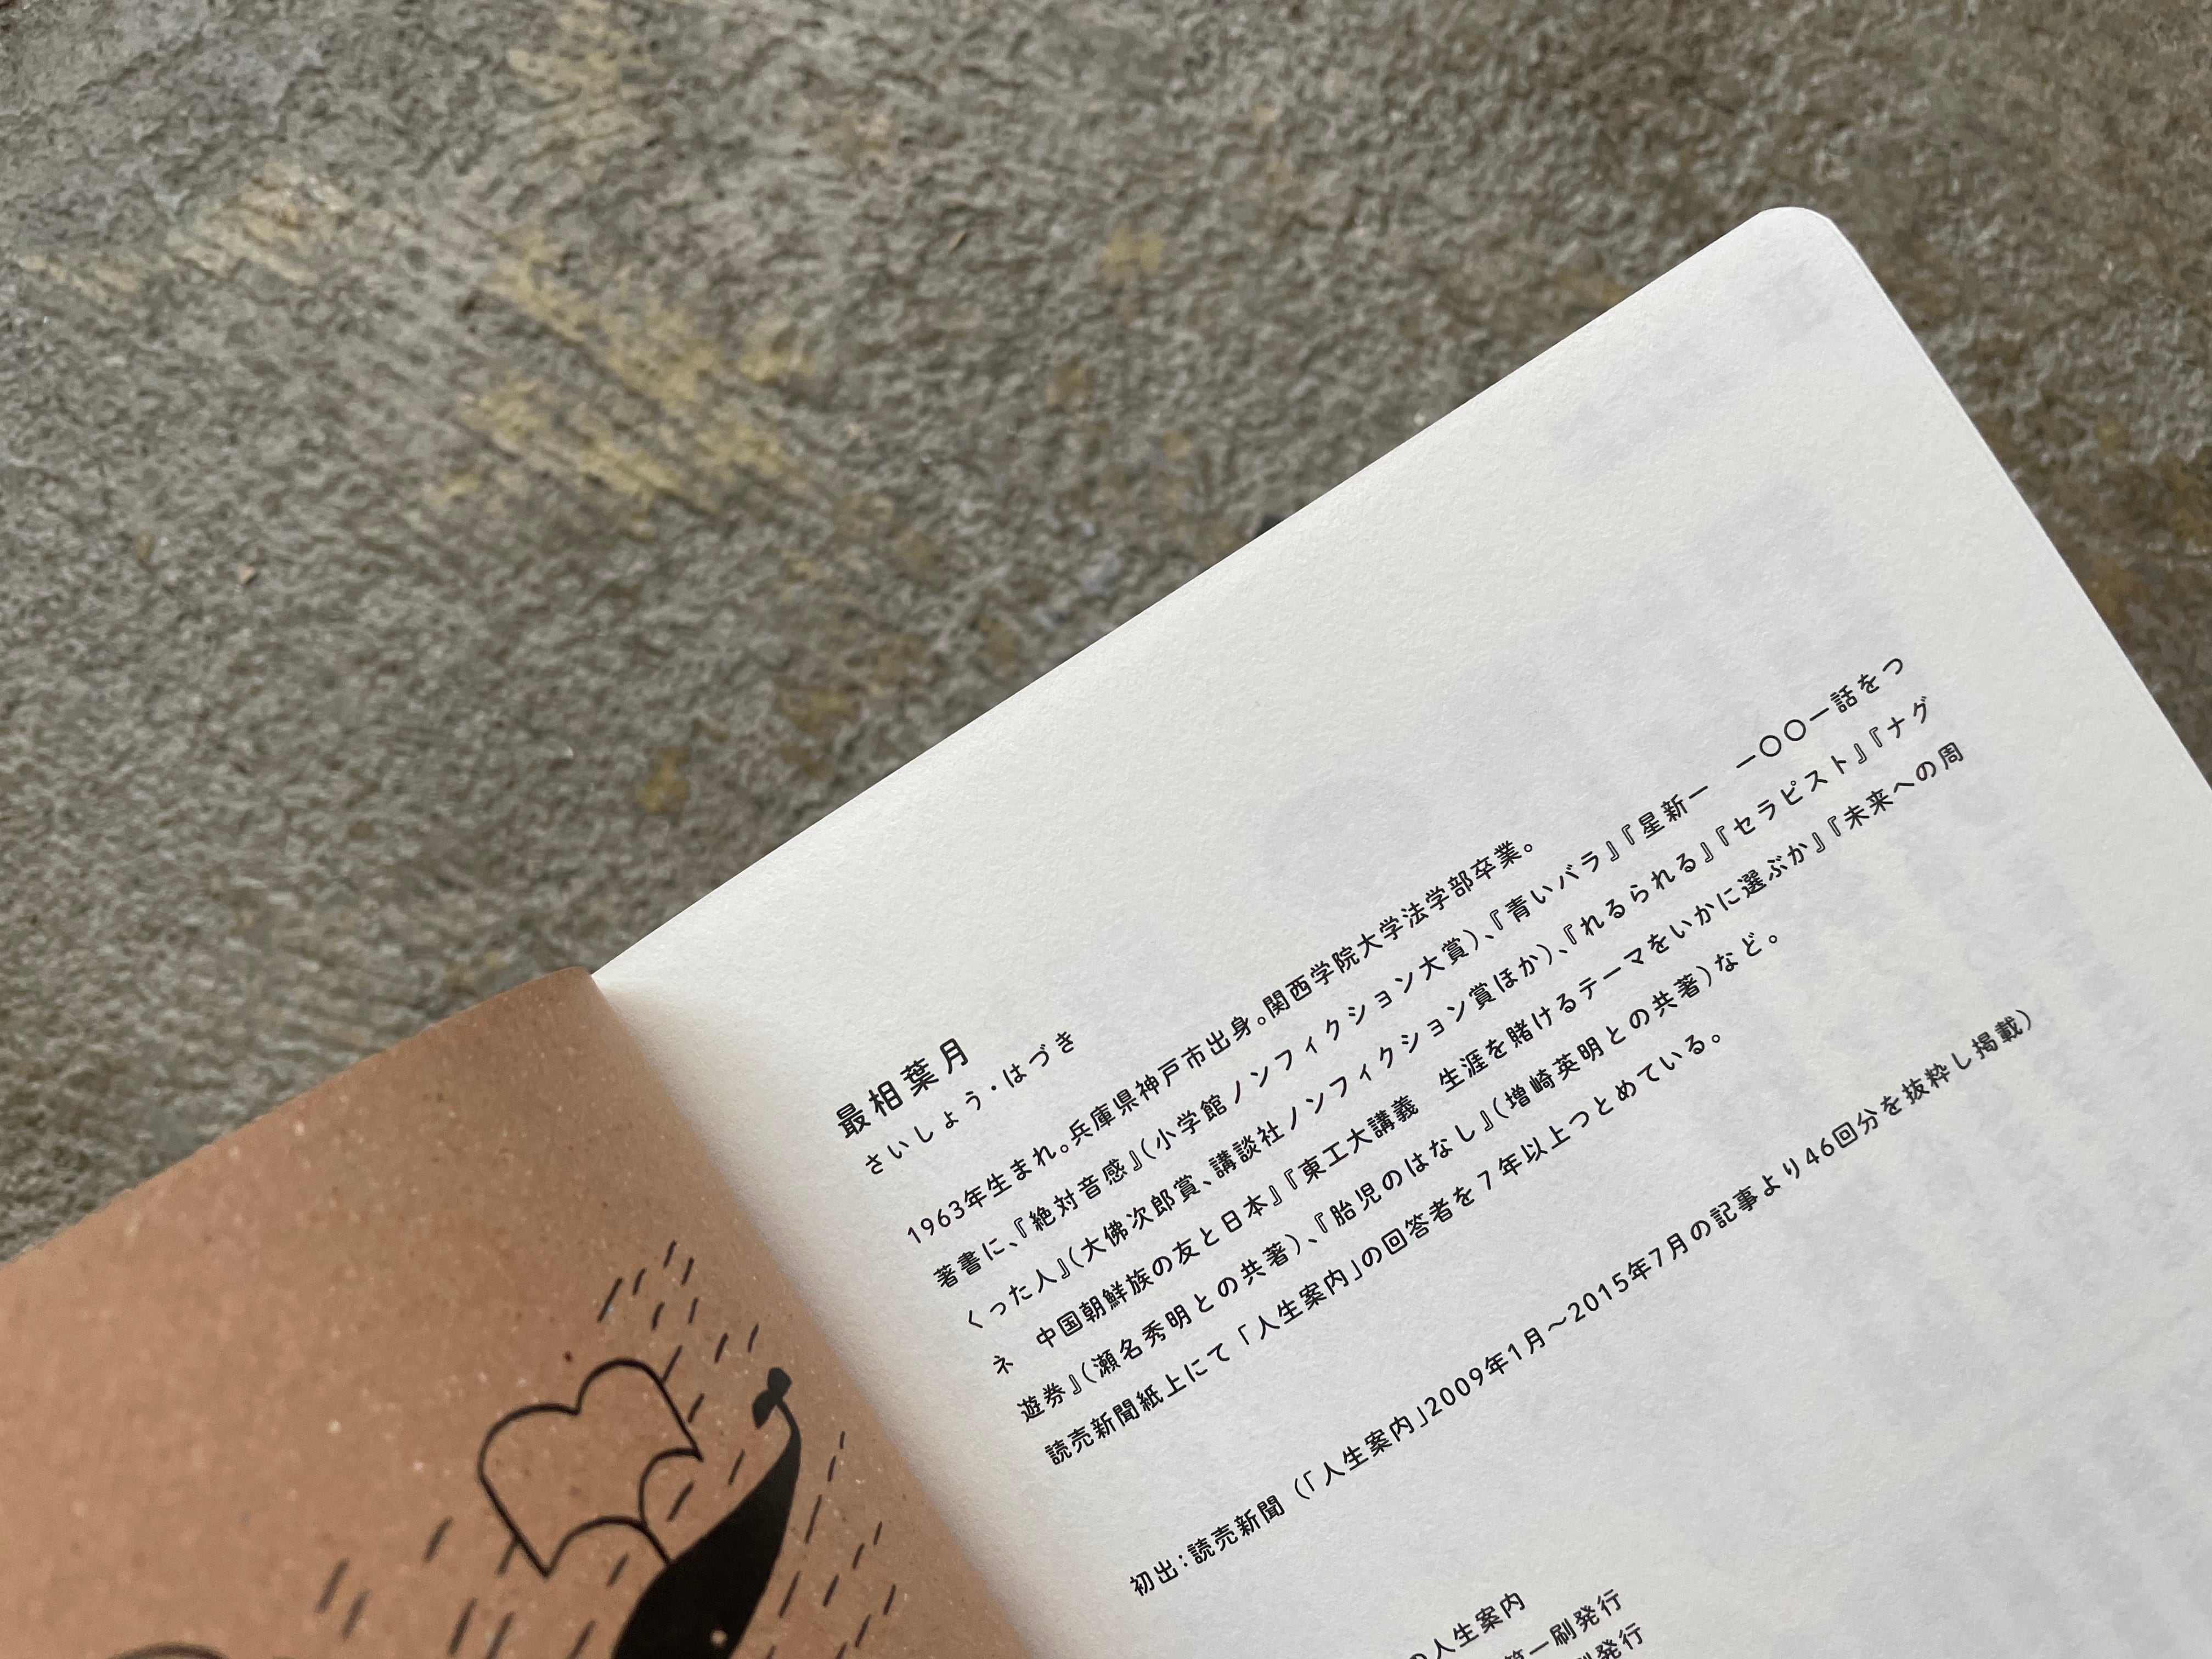 最相葉月
さいしょう・はづき
1963年生まれ。兵庫県神戸市出身。関西学院大学法学部卒業。
著書に、『絶対音感』（小学館ノンフィクション大賞）、『青いバラ』『星新一　一〇〇一話をつ
くった人』（大佛次郎賞、講談社ノンフィクション賞ほか）、『れるられる』『セラピスト』『ナグ
ネ　中国朝鮮族の友と日本』『東工大講義　生涯を賭けるテーマをいかに選ぶか』『未来への周
遊券』（瀬名秀明との共著）、『胎児のはなし』（増﨑英明との共著）など。
読売新聞紙上にて「人生案内」の回答者を７年以上つとめている。
初出：読売新聞（「人生案内」2009年1月〜2015年7月の記事より46回分を抜粋し掲載）
の人生案内
第一刷発行
刷発行